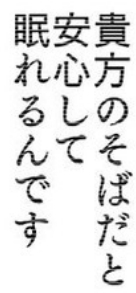 貴方のそばだと
安心して
眠れるんです